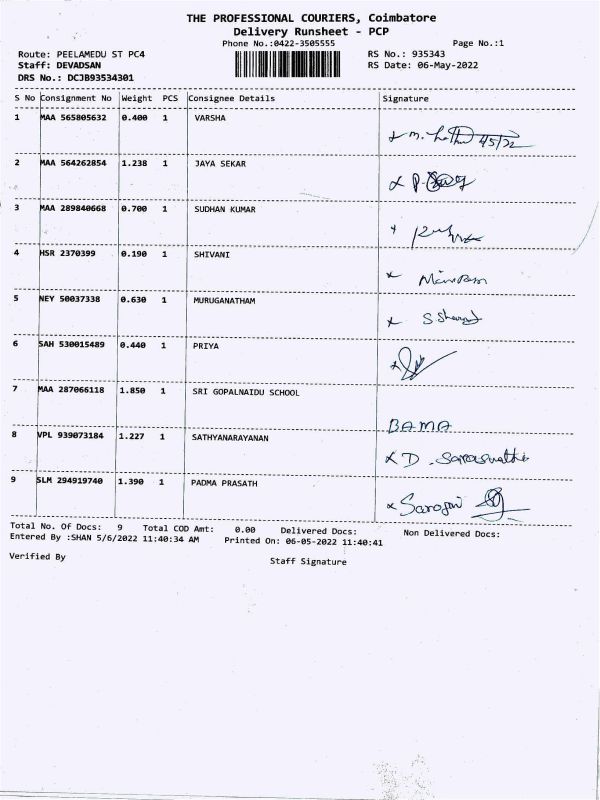 THE PROFESSIONAL COURIERS, Coimbatore
Delivery Runsheet - PCP
Phone No.:0422-3505555 Page No.:1
Route: PEELAMEDU ST PC4 RS No.: 935343
Staff: DEVADSAN RS Date: 06-May-2022
DRS No.: DCJB93534301
S No Consignment No Weight PCS Consignee Details Signature
1 MAA 565805632 0.400 1 VARSHA
2 MAA 564262854 1.238 1 JAYA SEKAR
3 MAA 289840668 0.700 1 SUDHAN KUMAR
4 HSR 2370399 0.190 1 SHIVANI
5 NEY 50037338 0.630 1 MURUGANATHAM
6 SAH 530015489 0.440 1 PRIYA
7 MAA 287066118 1.850 1 SRI GOPALNAIDU SCHOOL
BAMA
8 VPL 939073184 1.227 1 SATHYANARAYANAN
D. Saraswathi
9 SLM 294919740 1.390 1 PADMA PRASATH
Sarojini
Total No. Of Docs: 9 Total COD Amt: 0.00 Delivered Docs: Non Delivered Docs:
Entered By :SHAN 5/6/2022 11:40:34 AM Printed On: 06-05-2022 11:40:41
Verified By Staff Signature